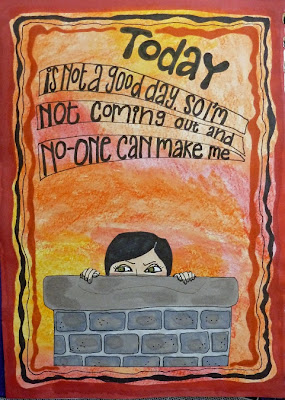 Today
is Not a good day. So I'm
Not coming out and
No-one can make me